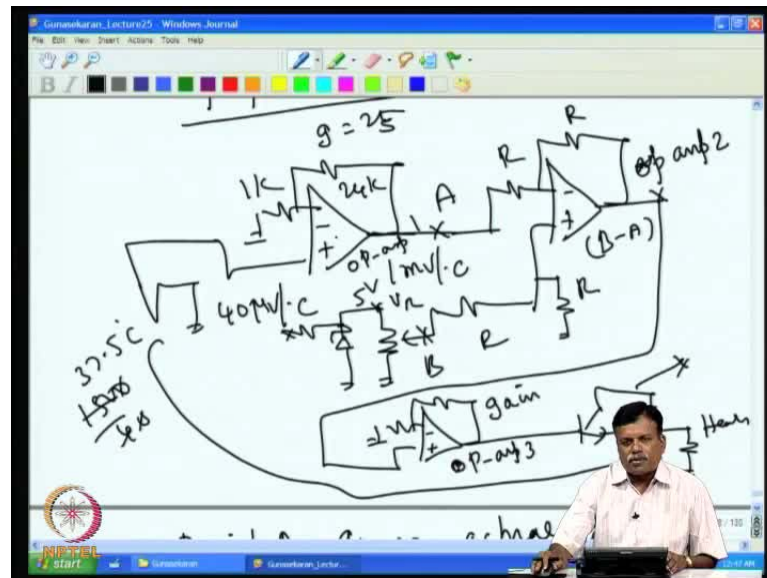 Gunasekaran_Lecture25 - Windows Journal
File Edit View Insert Actions Tools Help
B I
g = 25
1K
24K
A
R
R
op amp 2
-
+
op-amp
1 mV/°C
-
+
(B-A)
40 μV/°C
5V
VR
R
B
R
37.5°C
1500
40
gain
-
+
op-amp 3
NPTEL
start
Gunasekaran
Gunasekaran_Lectur...
12:47 AM